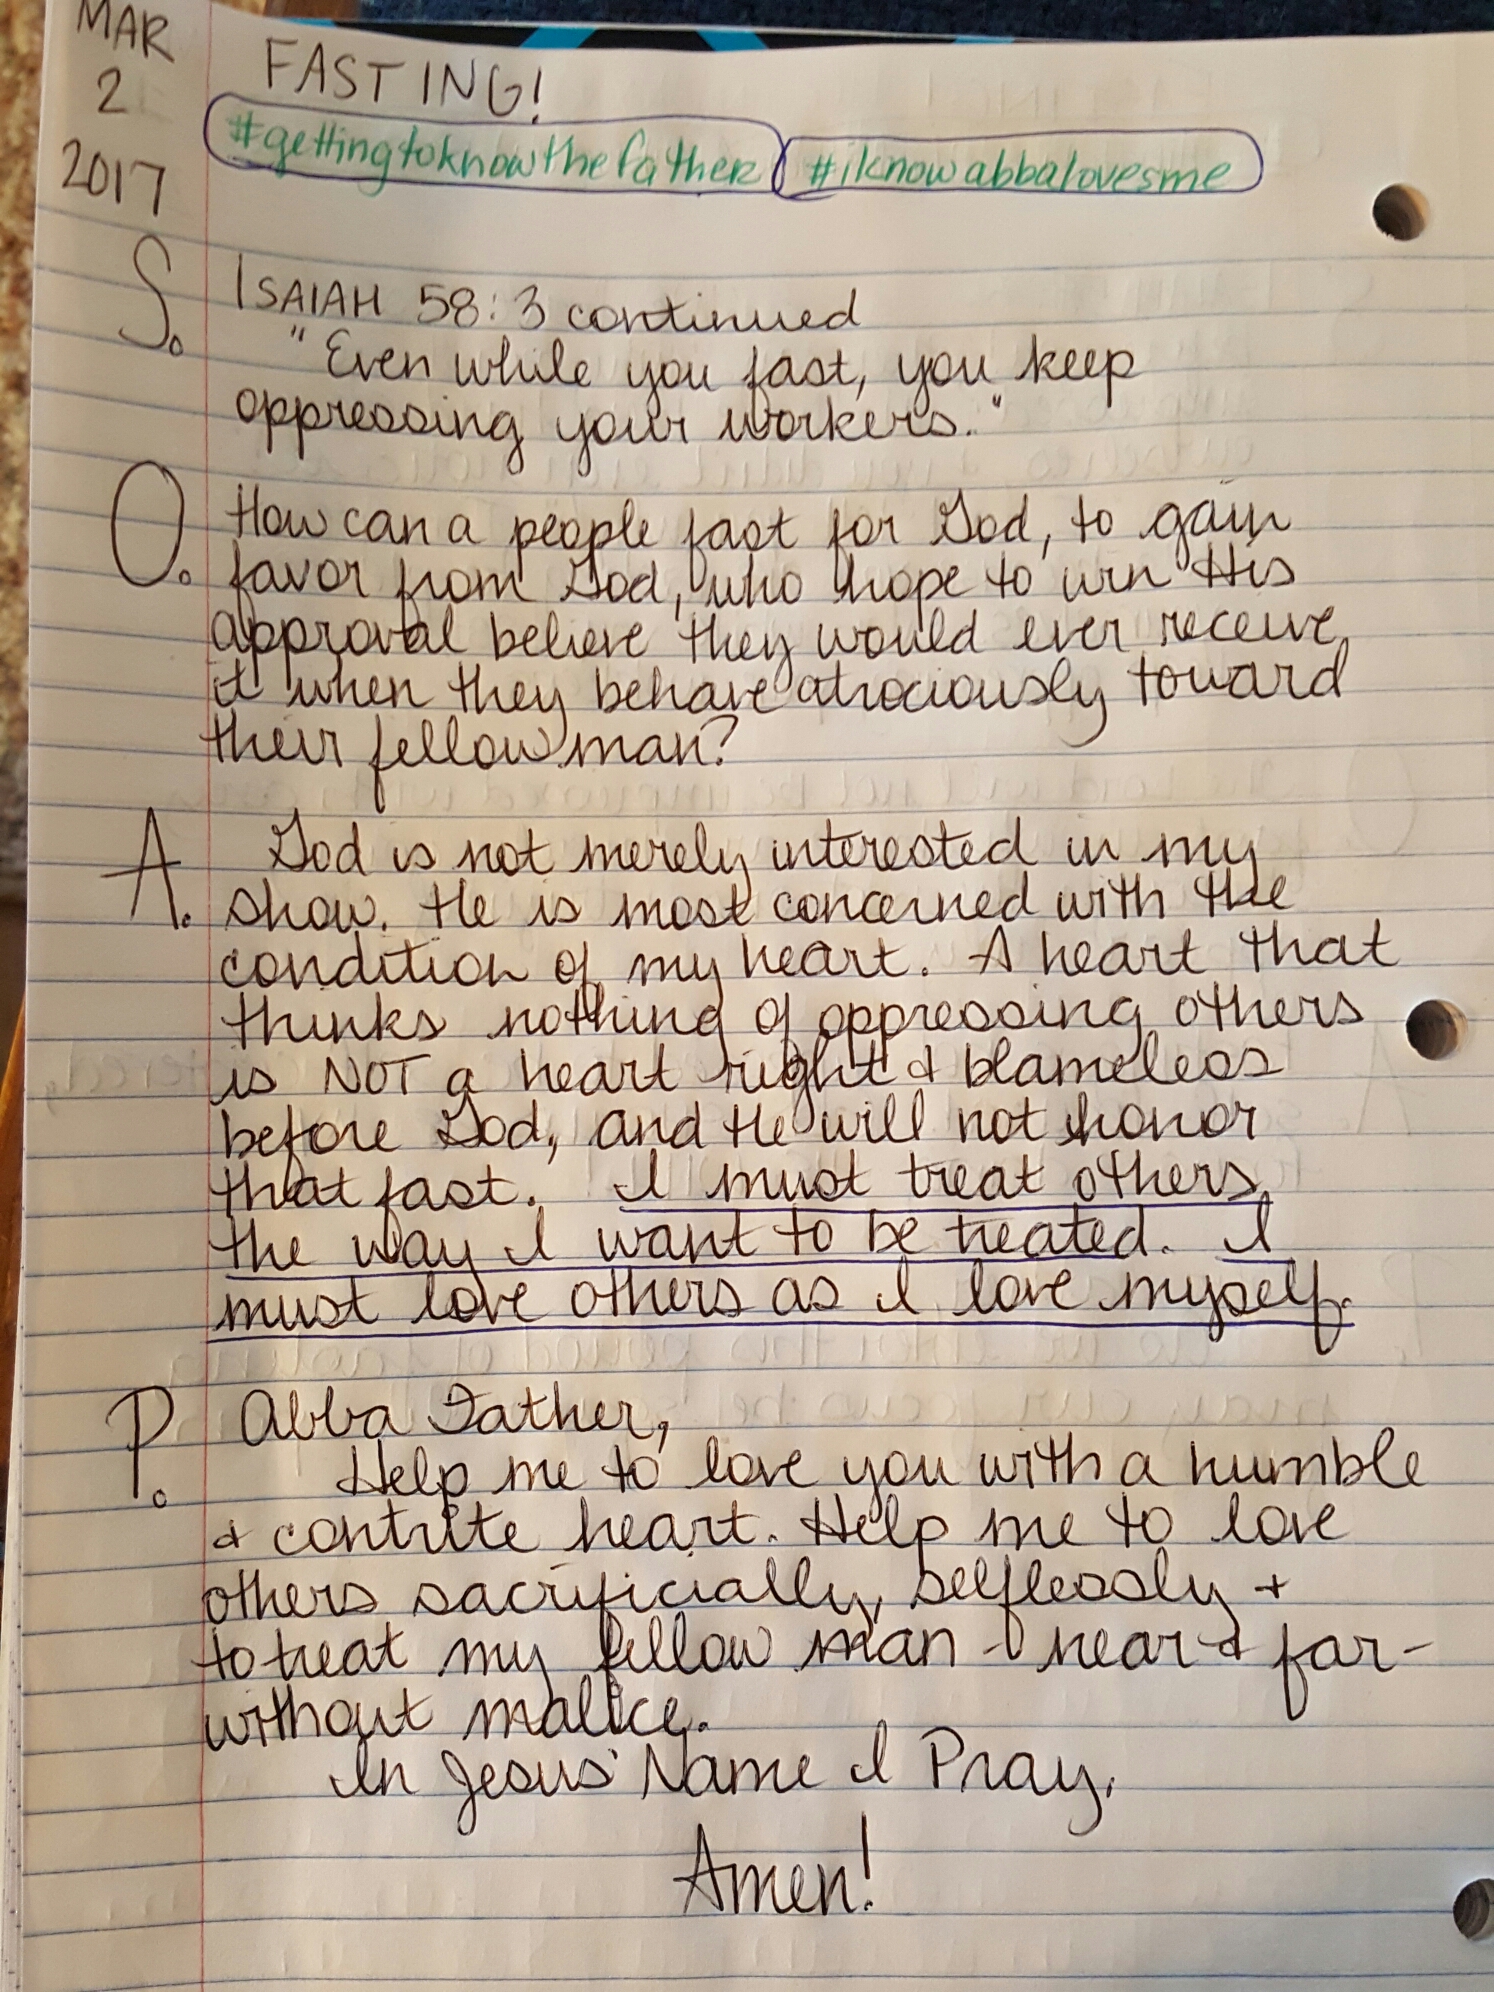 MAR
2
2017
FASTING!
#gettingtoknowthefather #iknowabbalovesme
S. ISAIAH 58:3 continued
"Even while you fast, you keep
oppressing your workers."
O. How can a people fast for God, to gain
favor from God, who hope to win His
approval believe they would ever receive
it when they behave atrociously toward
their fellow man?
A. God is not merely interested in my
show. He is most concerned with the
condition of my heart. A heart that
thinks nothing of oppressing others
is NOT a heart right & blameless
before God, and He will not honor
that fast. I must treat others
the way I want to be treated. I
must love others as I love myself.
P. Abba Father,
Help me to love you with a humble
& contrite heart. Help me to love
others sacrificially, selflessly +
to treat my fellow man - near & far-
without malice.
In Jesus' Name I Pray,
Amen!